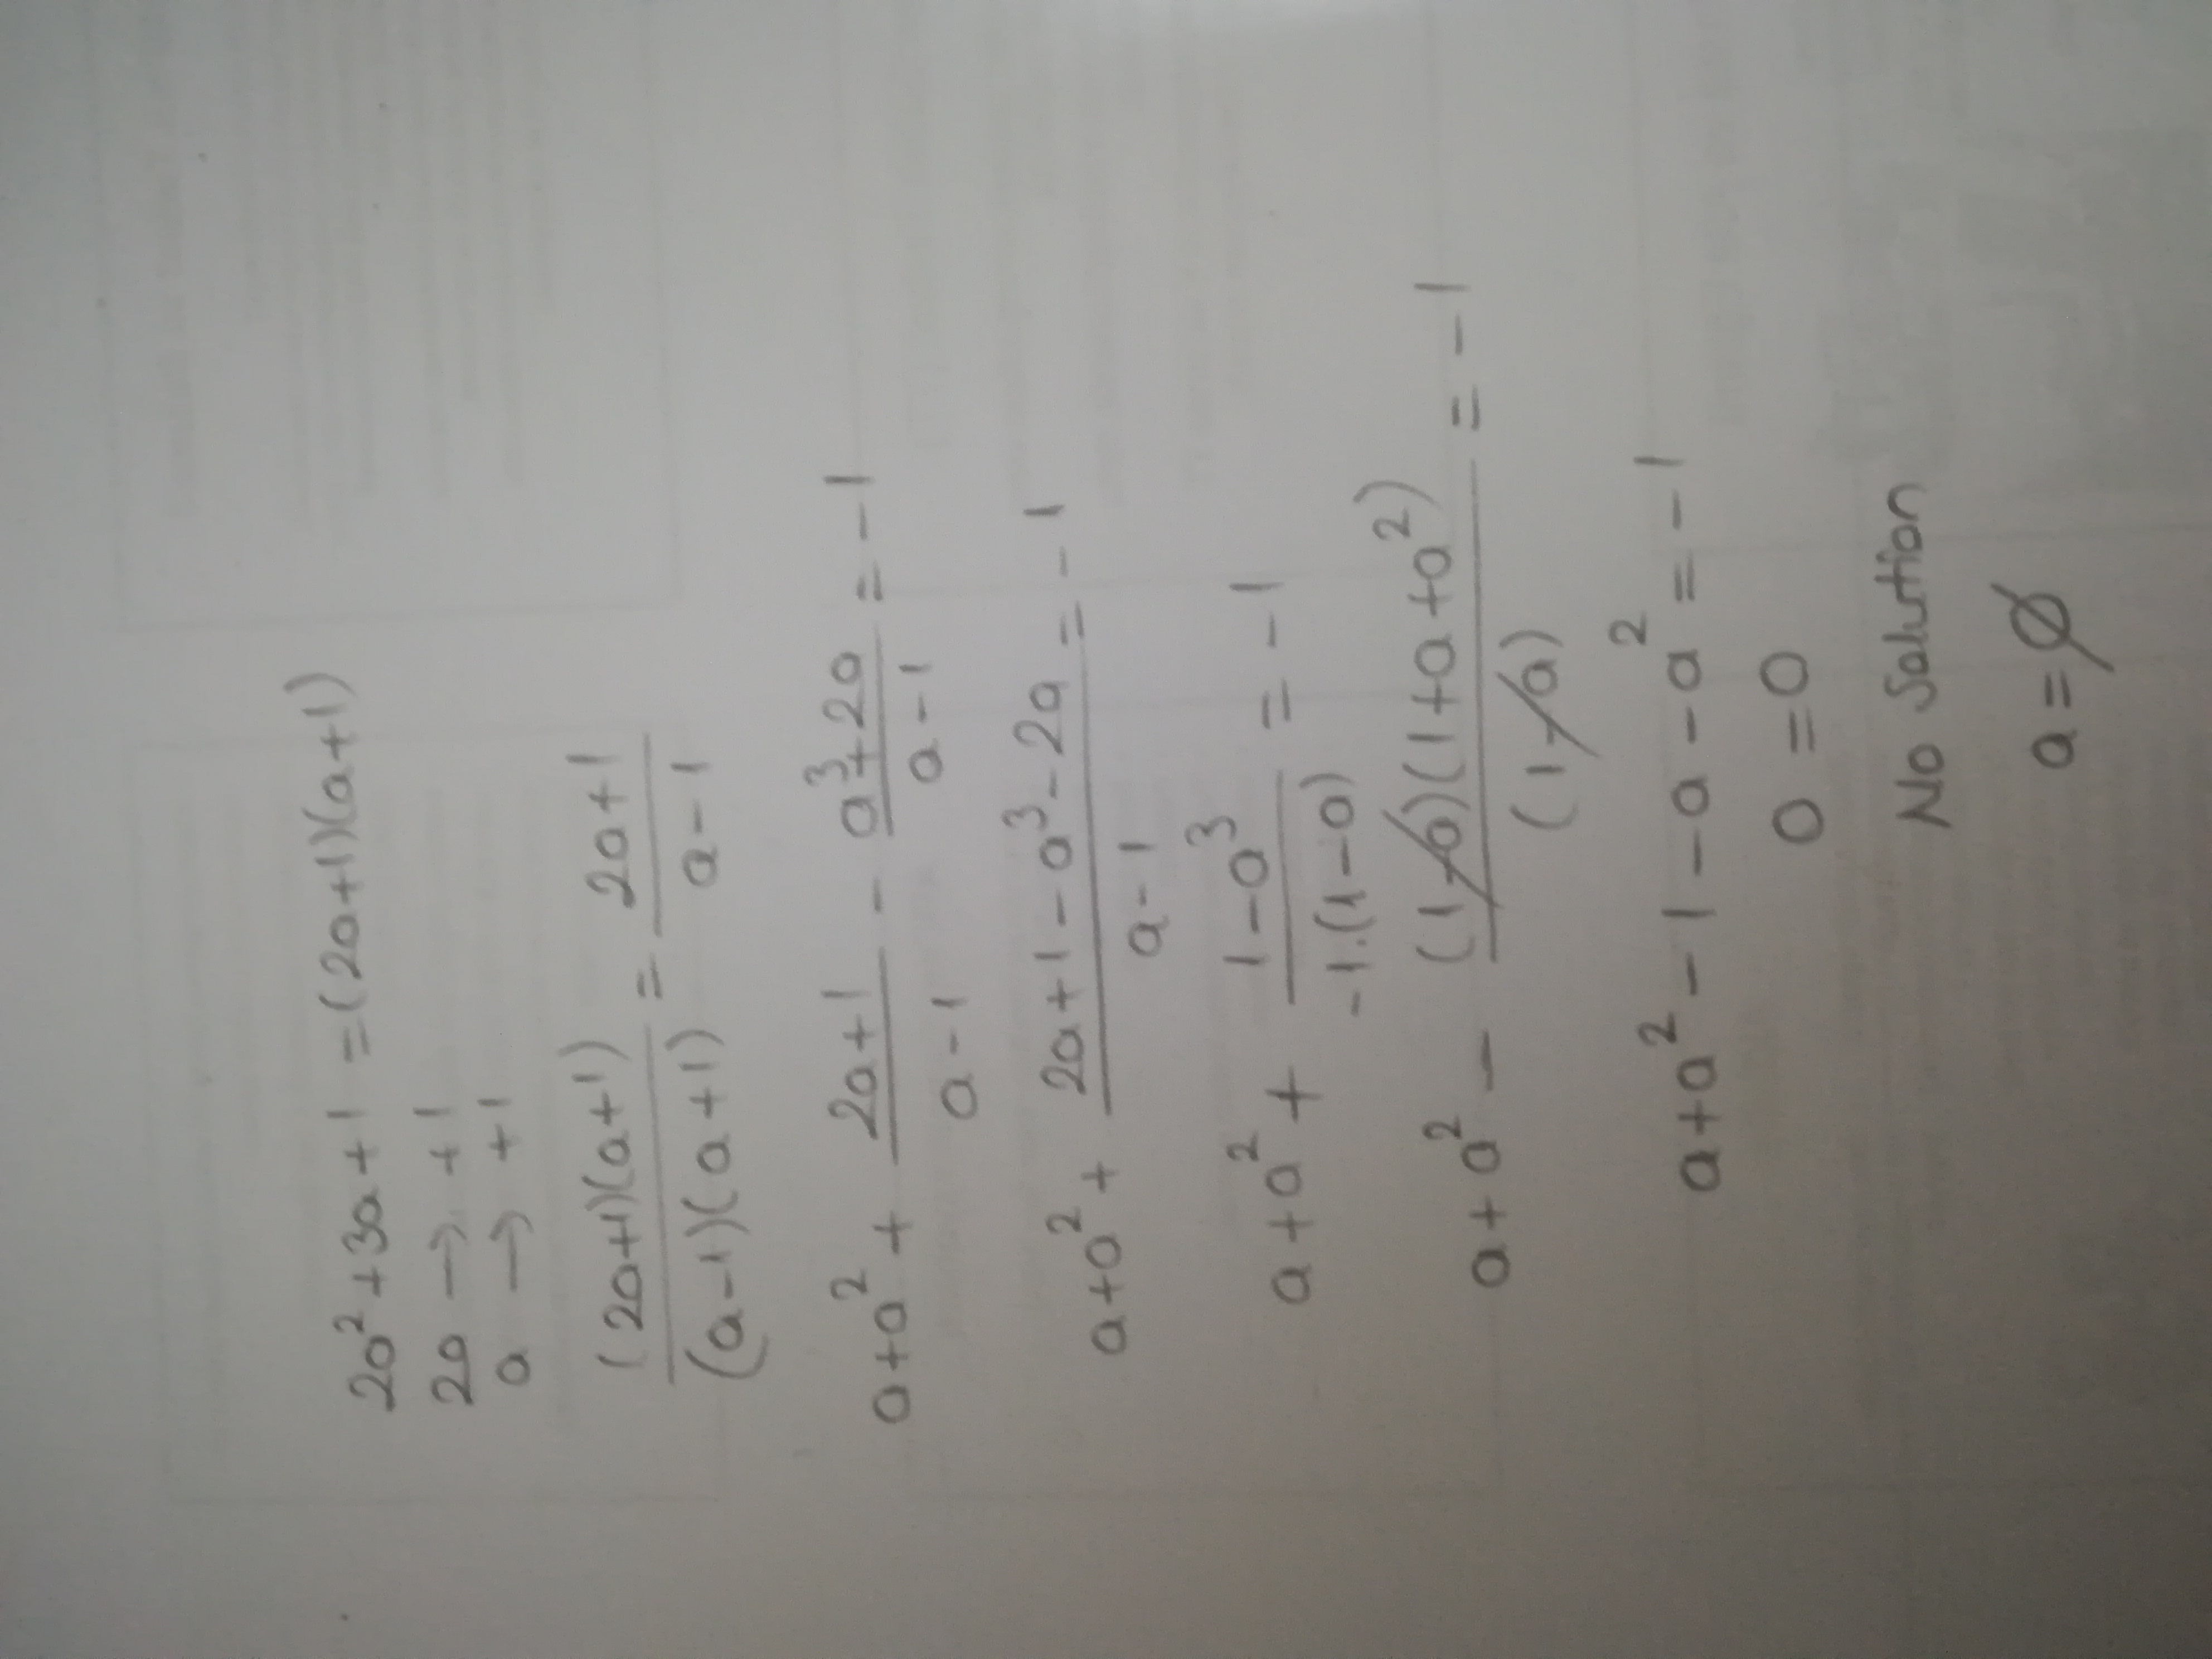 2a² + 3a + 1 = (2a+1)(a+1)
2a → +1
a → +1
(2a+1)(a+1) / (a-1)(a+1) = 2a+1 / a-1
a+a² + 2a+1 / a-1 - a³+2a / a-1 = -1
a+a² + 2a+1-a³-2a / a-1 = -1
a+a² + 1-a³ / -1.(1-a) = -1
a+a² - (1-a)(1+a+a²) / (1-a) = -1
a+a² - 1 - a - a² = -1
0 = 0
No Solution
a = ∅